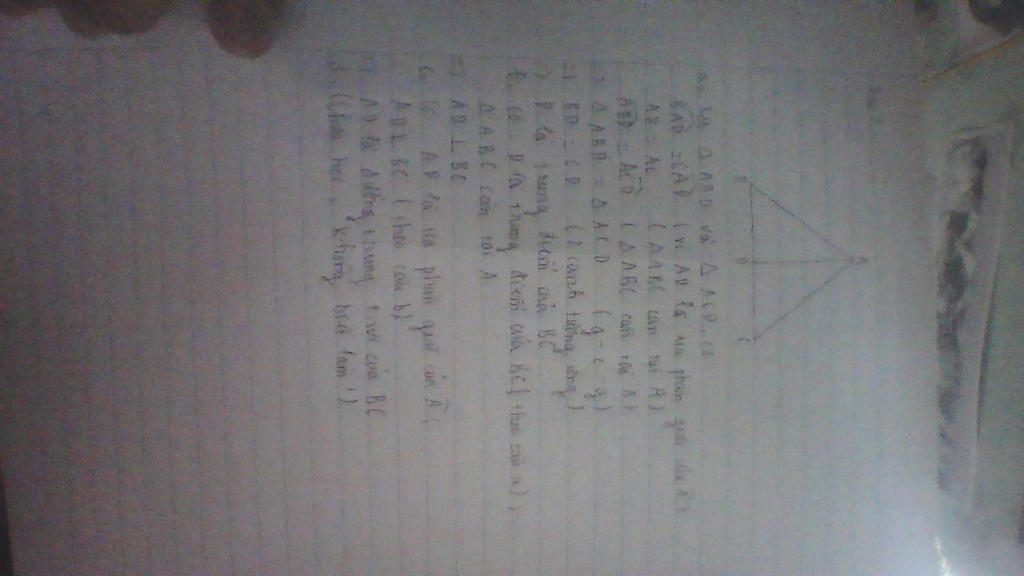 Bài 2
A
B D C
a, Xét Δ ABD và Δ ACD có
BAD = CAD ( vì AD là tia phân giác của A )
AB = AC ( Δ ABC cân tại A )
ABD = ACD ( Δ ABC cân tại A )
=> Δ ABD = Δ ACD ( g - c - g )
=> BD = CD ( 2 cạnh tương ứng )
=> D là trung điểm của BC
b, Có D là trung điểm của BC ( theo câu a ),
Δ ABC cân tại A
=> AD ⊥ BC
c, Có AD là tia phân giác của A ,
AD ⊥ BC ( theo câu b )
=> AD là đường trung trực của BC
d, ( Chưa học , không biết làm ! )